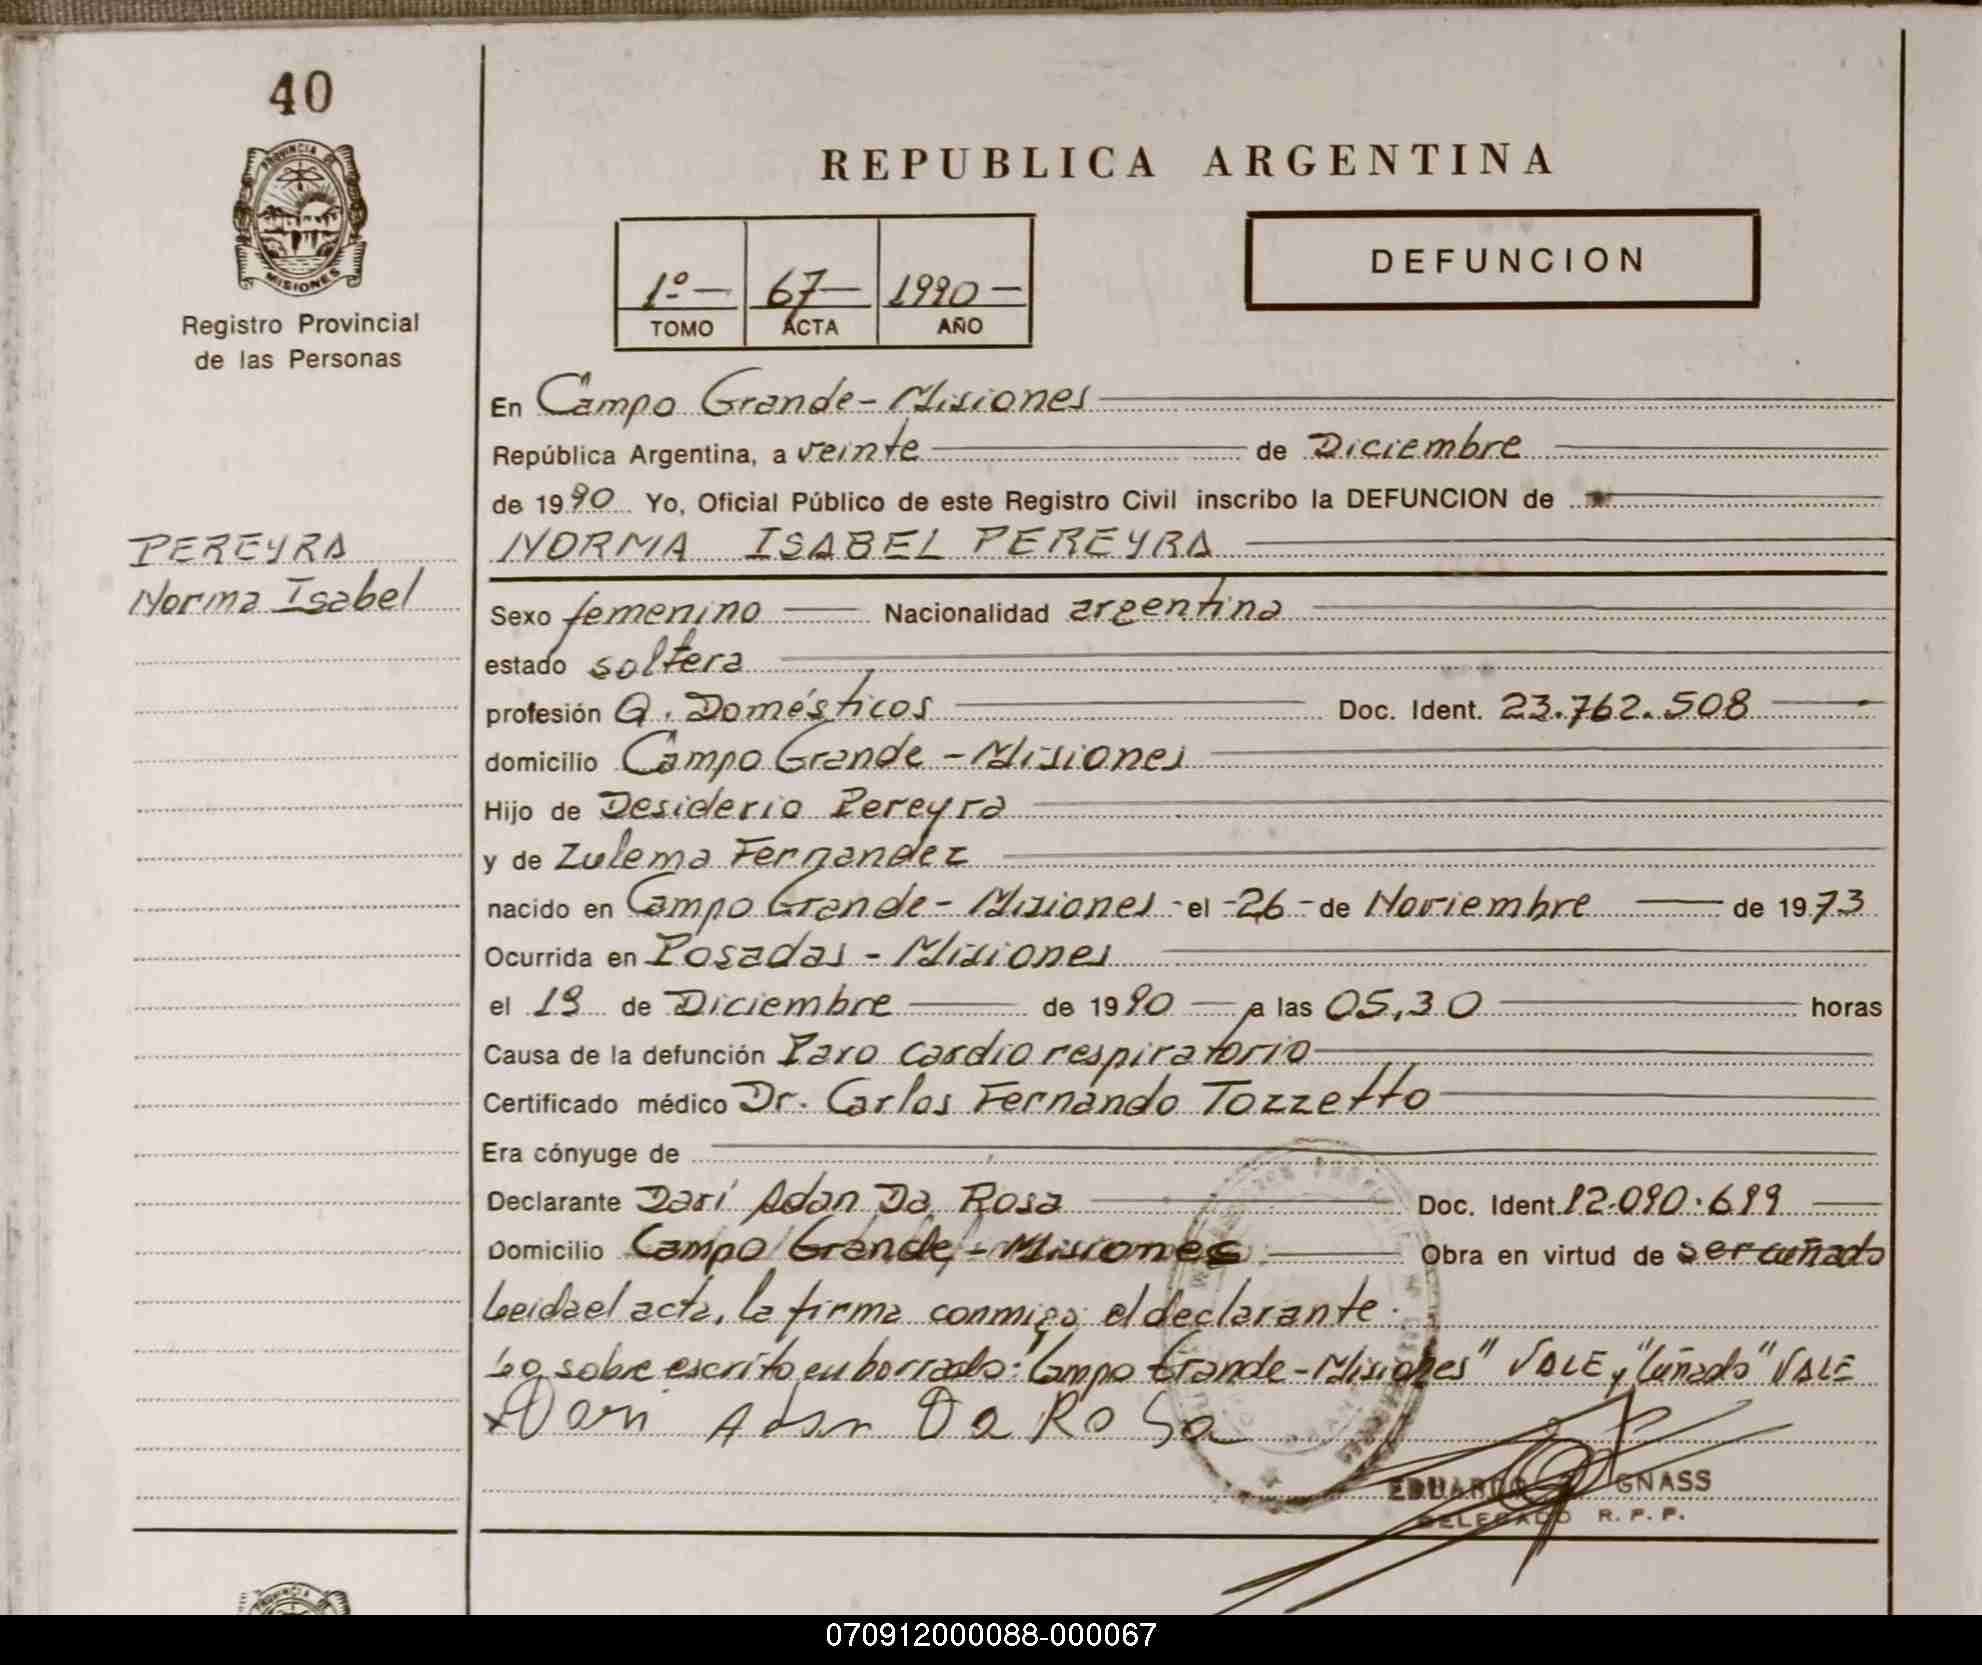 40
PROVINCIA DE
MISIONES
Registro Provincial
de las Personas
PEREYRA
Norma Isabel
REPUBLICA ARGENTINA
1º 67 1990
TOMO ACTA AÑO
DEFUNCION
En Campo Grande - Misiones
República Argentina, a veinte de Diciembre
de 1990 Yo, Oficial Público de este Registro Civil inscribo la DEFUNCION de
NORMA ISABEL PEREYRA
Sexo femenino Nacionalidad argentina
estado soltera
profesión Q. Domésticos Doc. Ident. 23.762.508
domicilio Campo Grande - Misiones
Hijo de Desiderio Pereyra
y de Zulema Fernandez
nacido en Campo Grande - Misiones - el - 26 - de Noviembre de 1973
Ocurrida en Posadas - Misiones
el 19 de Diciembre de 1990 a las 05,30 horas
Causa de la defunción Paro cardio respiratorio
Certificado médico Dr. Carlos Fernando Tozzetto
Era cónyuge de
Declarante Dari Adan Da Rosa Doc. Ident. 12.090.699
Domicilio Campo Grande - Misiones Obra en virtud de ser cuñado
Leida el acta, la firma conmigo el declarante.
Lo sobre escrito en borrado: "Campo Grande - Misiones" VALE y "Cuñado" VALE
Dari Adan Da RoSa
EDUARDO GNASS
DELEGADO R. P. P.
070912000088-000067